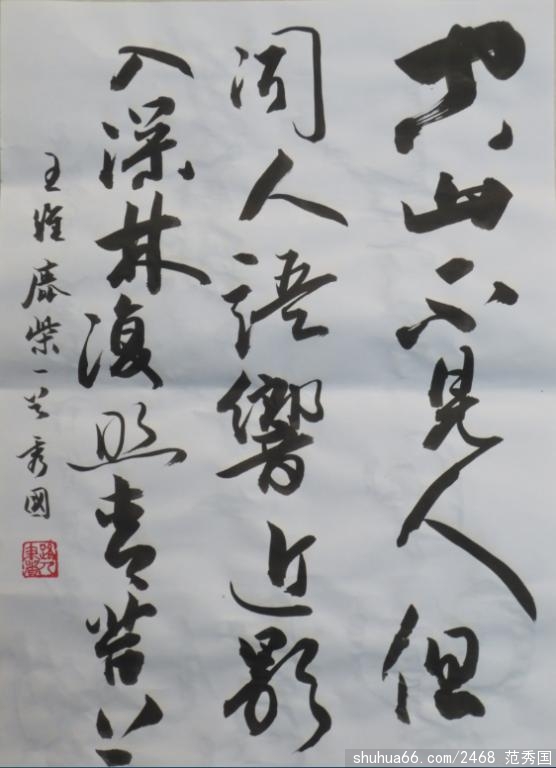 空山不見人但
聞人語響近影
入深林復照青苔上
王維鹿柴一首秀國
shuhua66.com/2468 范秀国